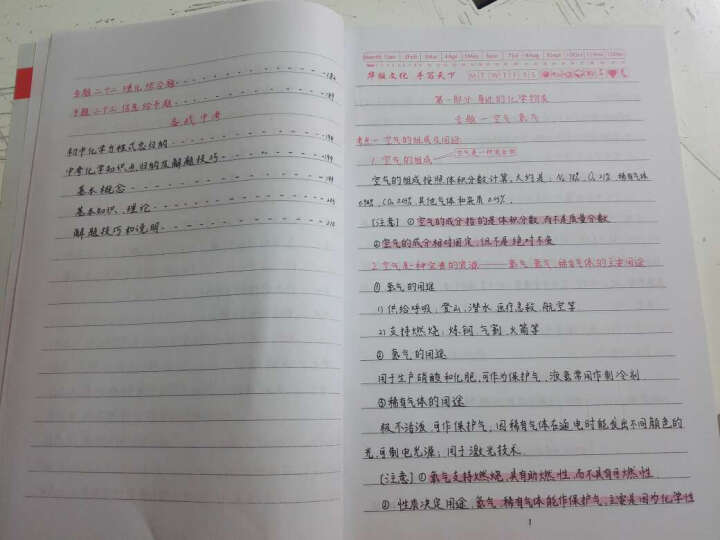 专题二十一 理化综合题 182
专题二十二 信息给予题 189
备战中考
初中化学方程式总归纳 194
中考化学知识点归纳及解题技巧 199
基本概念 199
基本知识、理论 203
解题技巧和说明 210
华娅文化 手写天下 M T W T F S S
第一部分 身边的化学物质
专题一 空气 氧气
考点一 空气的组成及用途
1. 空气的组成 空气是一种混合物
空气的组成按照体积分数计算,大约是: N₂ 78%、O₂ 21%、稀有气体
0.94%、CO₂ 0.03%、其他气体和杂质 0.03%.
[注意] ① 空气的成分指的是体积分数,而不是质量分数
② 空气的成分相对固定,但不是绝对不变
2. 空气是一种宝贵的资源 —— 氧气、氮气、稀有气体的主要用途
① 氧气的用途
1) 供给呼吸: 登山、潜水、医疗急救、航空等
2) 支持燃烧: 炼钢、气割、火箭等
② 氮气的用途
用于生产硝酸和化肥,可作为保护气、液氮常用作制冷剂
③ 稀有气体的用途
极不活泼,可作保护气,因稀有气体在通电时能发出不同颜色的
光,可制电光源; 用于激光技术
[注意] ① 氧气支持燃烧,具有助燃性,而不具有可燃性
② 性质决定用途,氮气、稀有气体能作保护气,主要是因为化学性
1